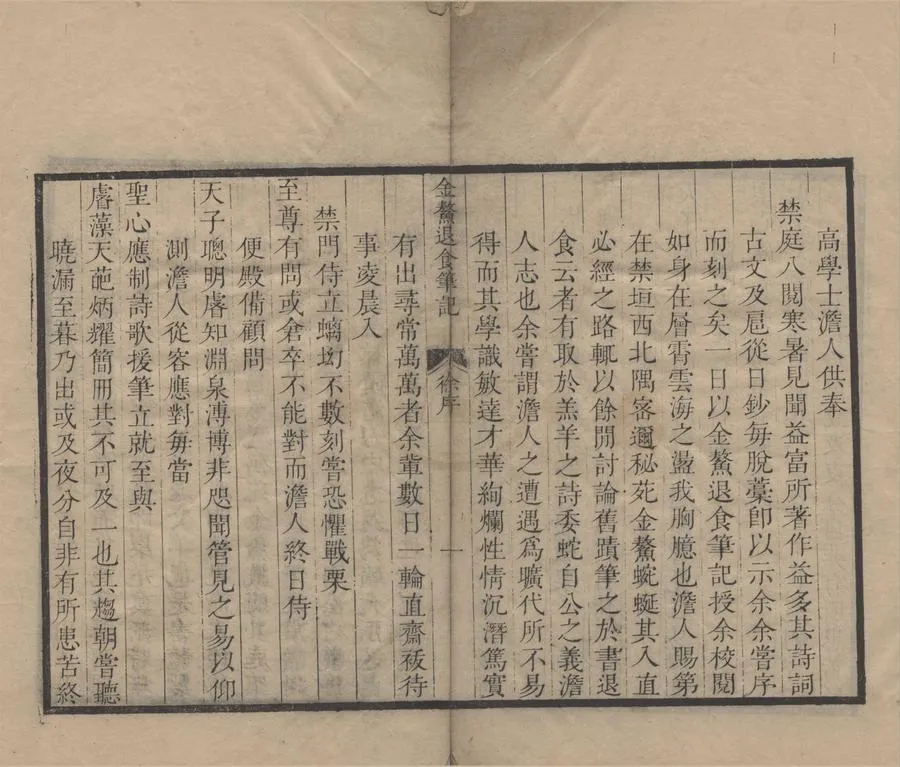 高學士澹人供奉
禁庭八閱寒暑見聞益富所著作益多其詩詞
古文及扈從日鈔每脫藁卽以示余余嘗序
而刻之矣一日以金鰲退食筆記授余校閱
如身在層霄雲海之盪我胸臆也澹人賜第
在禁垣西北隅密邇秘苑金鰲蜿蜒其入直
必經之路輒以餘閒討論舊蹟筆之於書退
食云者有取於羔羊之詩委蛇自公之義澹
人志也余嘗謂澹人之遭遇爲曠代所不易
得而其學識敏達才華絢爛性情沉潛篤實
金鰲退食筆記
徐序
一
有出尋常萬萬者余輩數日一輪直齋祓待
事凌晨入
禁門侍立螭㘭不數刻嘗恐懼戰栗
至尊有問或倉卒不能對而澹人終日侍
便殿備顧問
天子聰明睿知淵泉溥博非咫聞管見之易以仰
測澹人從容應對每當
聖心應制詩歌援筆立就至與
睿藻天葩炳耀簡冊其不可及一也其趨朝嘗聽
曉漏至暮乃出或及夜分自非有所患苦終